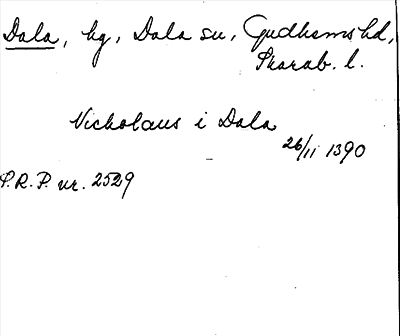 Dala, hg, Dala sn, Gudhems hd,
Skarab. l.
Nicholaus i Dala
26/11 1390
P.R.P. nr. 2529